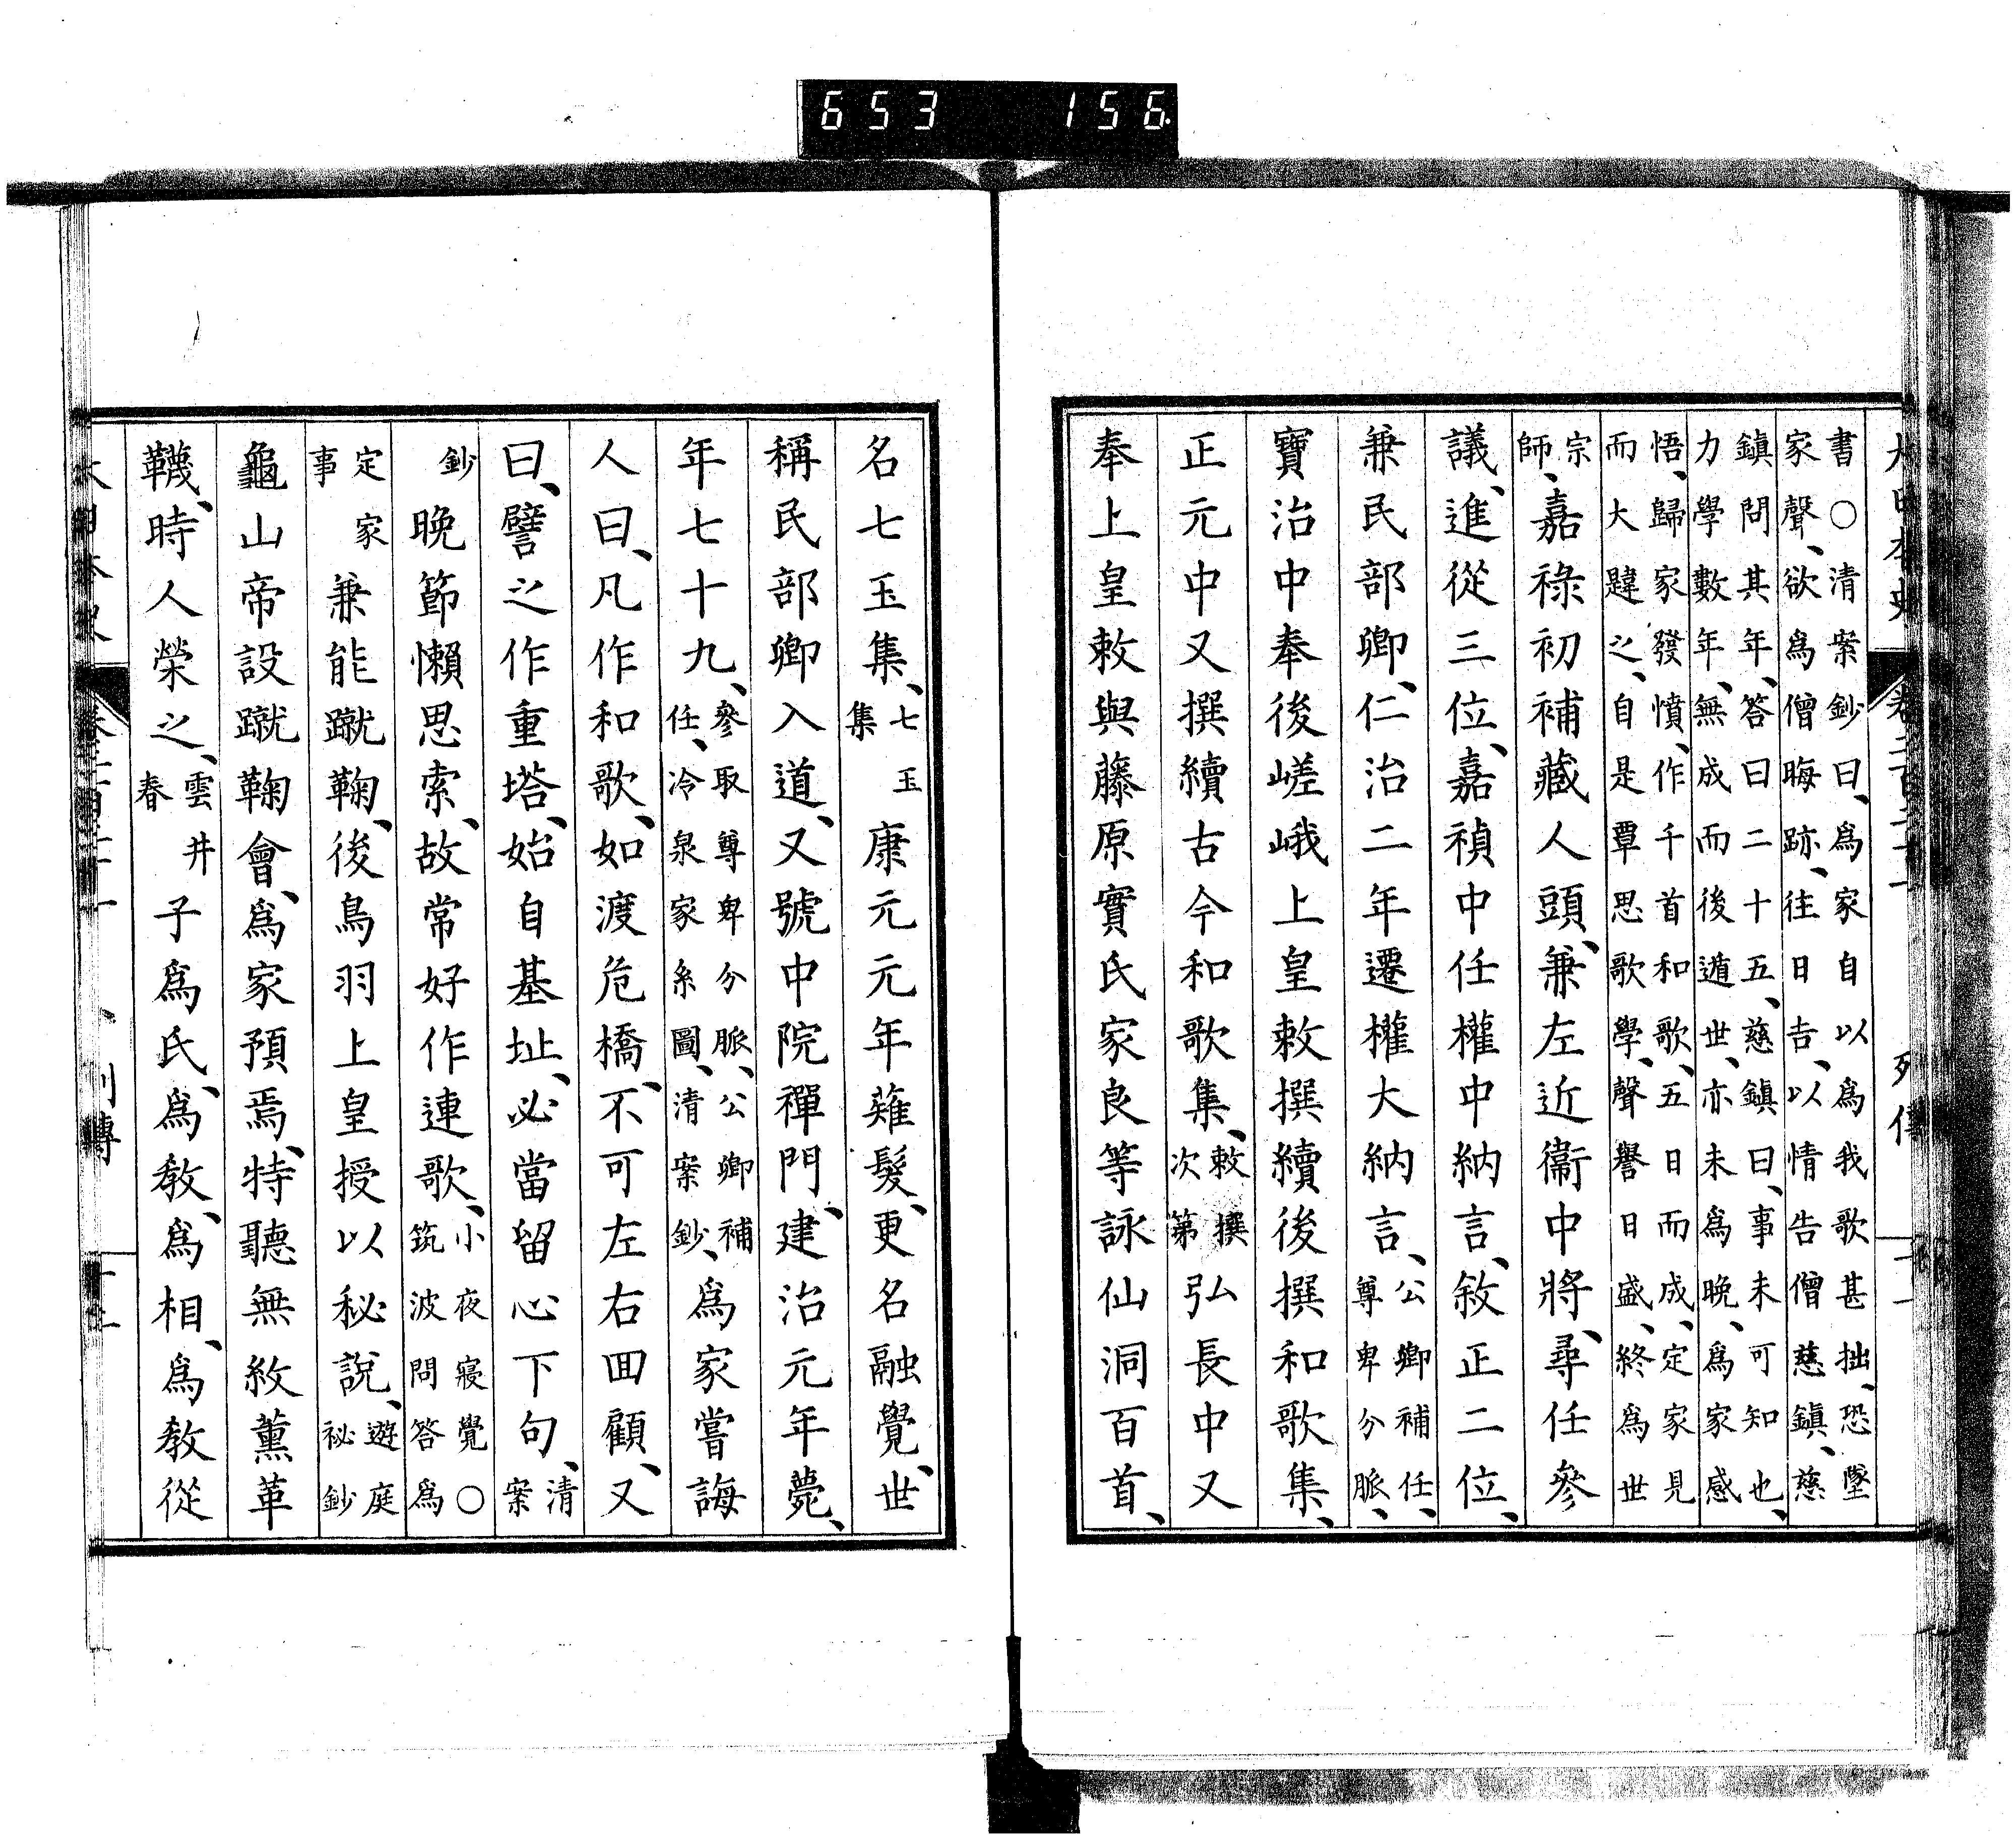 653 156
大日本史 卷二百二十一 列傳
書○清案鈔曰、爲家自以爲我歌甚拙、恐墜
家聲、欲爲僧晦跡、往日吉、以情告僧慈鎭、慈
鎭問其年、答曰二十五、慈鎭曰、事未可知也、
力學數年、無成而後遁世、亦未爲晩、爲家感
悟、歸家發憤、作千首和歌、五日而成、定家見
而大韙之、自是覃思歌學、聲譽日盛、終爲世
宗師、嘉祿初補藏人頭、兼左近衞中將、尋任參
議、進從三位、嘉禎中任權中納言、敘正二位、
兼民部卿、仁治二年遷權大納言、公卿補任、尊卑分脈、
寶治中奉後嵯峨上皇敕撰續後撰和歌集、
正元中又撰續古今和歌集、敕撰次第弘長中又
奉上皇敕與藤原實氏家良等詠仙洞百首、
名七玉集、七玉集康元元年薙髮、更名融覺、世
稱民部卿入道、又號中院禪門、建治元年薨、
年七十九、參取尊卑分脈、公卿補任、冷泉家系圖、清案鈔、爲家嘗誨
人曰、凡作和歌、如渡危橋、不可左右回顧、又
曰、譬之作重塔、始自基址、必當留心下句、清案
鈔晩節懶思索、故常好作連歌、小夜寢覺○筑波問答爲
定家事兼能蹴鞠、後鳥羽上皇授以秘說、遊庭秘鈔
龜山帝設蹴鞠會、爲家預焉、特聽無紋薰革
韈、時人榮之、雲井春子爲氏、爲教、爲相、爲教從